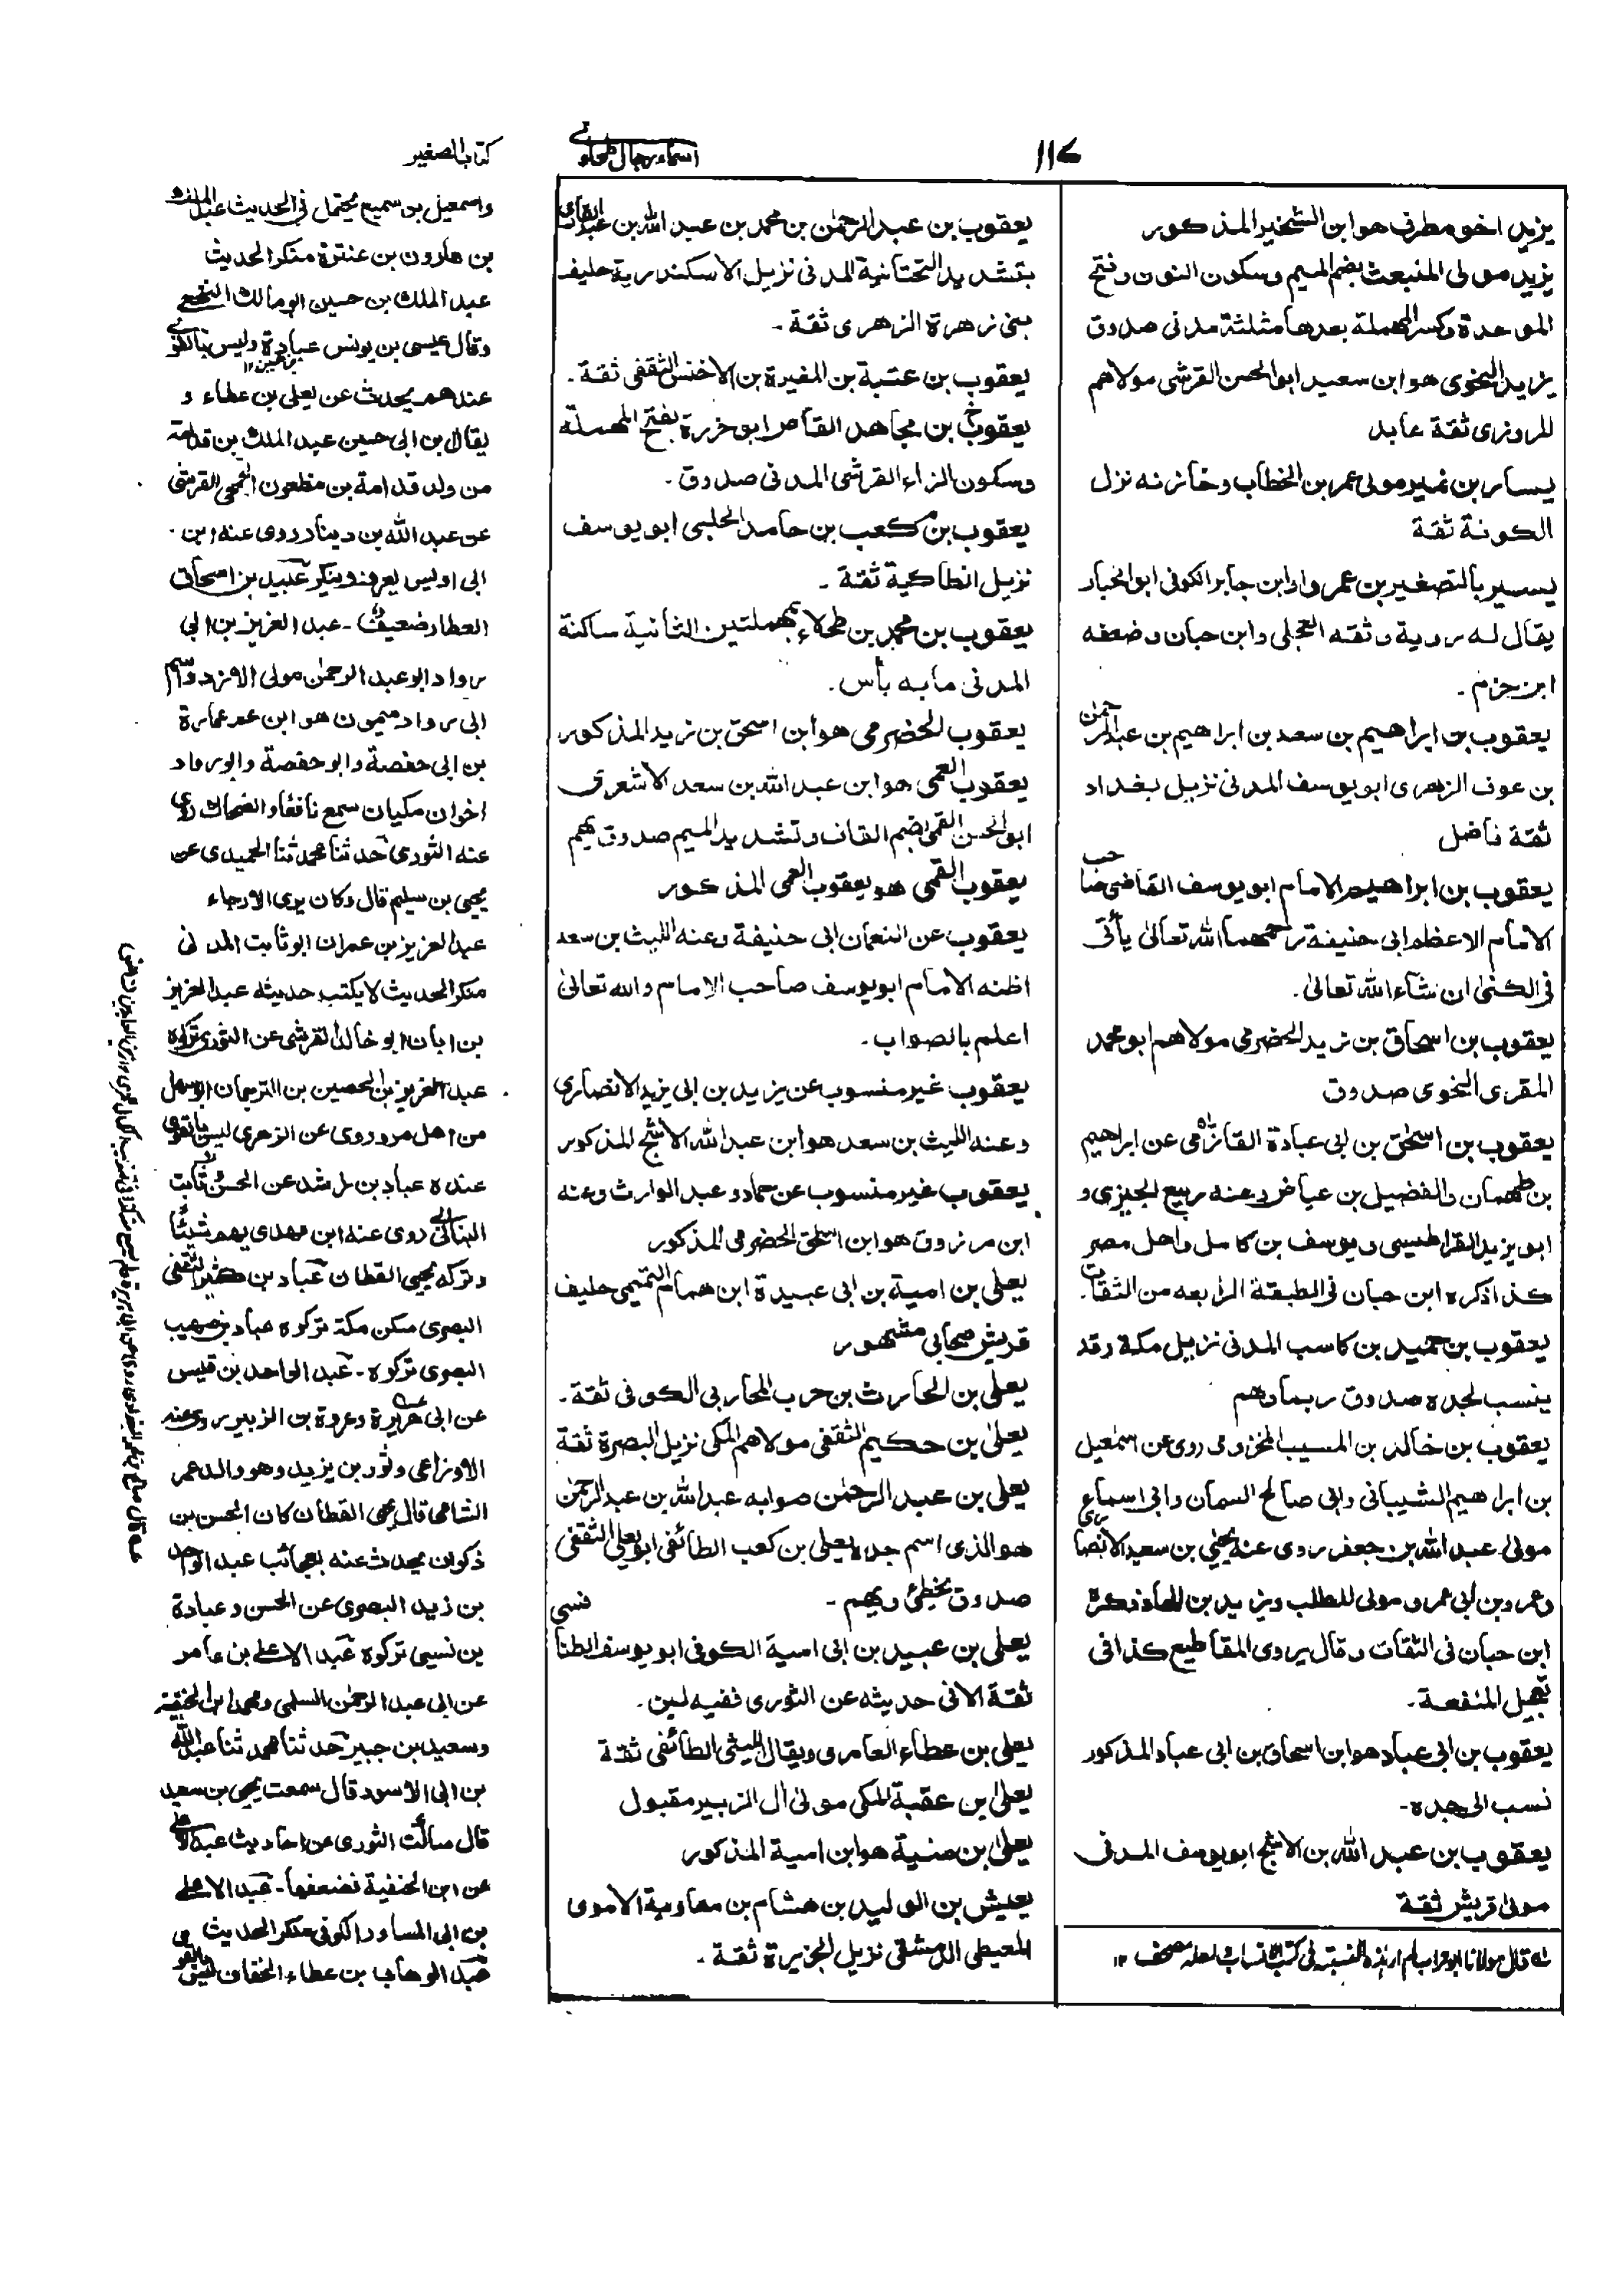 ١١٧
اسماء رجال طحاوی
كتاب الصغير
يزيد اخو مطرف هو ابن الشخير المذكور
يزيد مولى المنبعث بضم الميم وسكون النون وفتح
الموحدة وكسر المهملة بعدها مثلثة مدنى صدوق
يزيد النحوى هو ابن سعيد ابو الحسن القرشى مولاهم
المروزى ثقة عابد
يسار بن نمير مولى عمر بن الخطاب وخازنه نزل
الكوفة ثقة
يسير بالتصغير بن عمرو او ابن جابر الكوفى ابو الخيار
يقال له روية وثقه العجلى وابن حبان وضعفه
ابن حزم -
يعقوب بن ابراهيم بن سعد بن ابراهيم بن عبد الرحمن
بن عوف الزهرى ابو يوسف المدنى نزيل بغداد
ثقة فاضل
يعقوب بن ابراهيم الامام ابو يوسف القاضى صاحب
الامام الاعظم ابى حنيفة رحمهما الله تعالى يأتى
فى الكنى ان شاء الله تعالى -
يعقوب بن اسحاق بن زيد الحضرمى مولاهم ابو محمد
المقرى النحوى صدوق
يعقوب بن اسحق بن ابى عبادة القلزمى عن ابراهيم
بن طهمان والفضيل بن عياض وعنه ربيع الجيزى و
ابو يزيد القراطيسى ويوسف بن كامل واهل مصر
كذا ذكره ابن حبان فى الطبقة الرابعه من الثقات -
يعقوب بن حميد بن كاسب المدنى نزيل مكة وقد
ينسب لجده صدوق ربما وهم
يعقوب بن خالد بن المسيب المخزومى روى عن اسمعيل
بن ابراهيم الشيبانى وابى صالح السمان وابى اسماء
مولى عبد الله بن جعفر روى عنه يحيى بن سعيد الانصارى
وعمرو بن ابى عمرو مولى المطلب ويزيد بن الهاد ذكره
ابن حبان فى الثقات وقال يروى المقاطيع كذا فى
تعجيل المنفعة -
يعقوب بن ابى عباد هو ابن اسحاق بن ابى عباد المذكور
نسب الى جده -
يعقوب بن عبد الله بن الاشج ابو يوسف المدنى
مولى قريش ثقة
قال مولانا ابو تراب لم ار هذه النسبة فى كتب الانساب ولعله مصحف ١٢
يعقوب بن عبد الرحمن بن محمد بن عبد الله بن عبد القارى
بتشديد التحتانية المدنى نزيل الاسكندرية حليف
بنى زهرة الزهرى ثقة -
يعقوب بن عتبة بن المغيرة بن الاخنس الثقفى ثقة -
يعقوب بن مجاهد القاص ابو حزرة بفتح المهملة
وسكون الزاء القرشى المدنى صدوق -
يعقوب بن كعب بن حامد الحلبى ابو يوسف
نزيل انطاكية ثقة -
يعقوب بن محمد بن طحلاء بمهملتين الثانية ساكنة
المدنى ما به بأس -
يعقوب الحضرمى هو ابن اسحق بن زيد المذكور
يعقوب العمى هو ابن عبد الله بن سعد الاشعرى
ابو الحسن القمى بضم القاف وتشديد الميم صدوق يهم
يعقوب القمى هو يعقوب العمى المذكور
يعقوب عن النعمان ابى حنيفة وعنه الليث بن سعد
اظنه الامام ابو يوسف صاحب الامام والله تعالى
اعلم بالصواب -
يعقوب غير منسوب عن يزيد بن ابى يزيد الانصارى
وعنه الليث بن سعد هو ابن عبد الله الاشج المذكور
يعقوب غير منسوب عن حماد وعبد الوارث وعنه
ابن مرزوق هو ابن اسحق الحضرمى المذكور
يعلى بن امية بن ابى عبيدة ابن همام التميمى حليف
قريش صحابى مشهور
يعلى بن الحارث بن حرب المحاربى الكوفى ثقة -
يعلى بن حكيم الثقفى مولاهم المكى نزيل البصرة ثقة
يعلى بن عبد الرحمن صوابه عبد الله بن عبد الرحمن
هو الذى اسم جده يعلى بن كعب الطائفى ابو يعلى الثقفى
صدوق يخطئ ويهم -
يعلى بن عبيد بن ابى امية الكوفى ابو يوسف الطنافسى
ثقة الا فى حديثه عن الثورى ففيه لين -
يعلى بن عطاء العامرى ويقال الليثى الطائفى ثقة
يعلى بن عقبة المكى مولى آل الزبير مقبول
يعلى بن منية هو ابن امية المذكور
يعيش بن الوليد بن هشام بن معاوية الاموى
المعيطى الدمشقى نزيل الجزيرة ثقة -
واسمعيل بن سميع يحتمل فى الحديث عبد الملك
بن هارون بن عنترة منكر الحديث
عبد الملك بن حسين ابو مالك النخعى
وقال عيسى بن يونس عبادة وليس بالقوى
بن حسين ١٢
عندهم يحدث عن يعلى بن عطاء و
يقال بن ابى حسين عبد الملك بن قدامة
من ولد قدامة بن مظعون الجمحى القرشى
عن عبد الله بن دينار روى عنه ابن
ابى اويس يعرف وينكر عبيد بن اسحاق
العطار ضعيف - عبد العزيز بن ابى
رواد ابو عبد الرحمن مولى الازد واسم
ابى رواد ميمون هو ابن عم عمارة
بن ابى حفصة وابو حفصة وابو رواد
اخوان مكيان سمع نافعا والضحاك روى
عنه الثورى حدثنا محمد ثنا الحميدى عن
يحيى بن سليم قال وكان يرى الارجاء
عبد العزيز بن عمران ابو ثابت المدنى
منكر الحديث لا يكتب حديثه عبد العزيز
بن ابان ابو خالد القرشى عن الثورى تركوه
عبد العزيز بن الحصين بن الترجمان ابو سهل
من اهل مرو روى عن الزهرى ليس بالقوى
عنده عباد بن راشد عن الحسن وثابت
البنانى روى عنه ابن مهدى يهم شيئا
وتركه يحيى القطان عباد بن كثير الثقفى
البصرى سكن مكة تركوه عباد بن صهيب
البصرى تركوه - عبد الواحد بن قيس
عن ابى هريرة وعروة بن الزبير روى عنه
الاوزاعى وثور بن يزيد وهو والد عمر
الشامى قال يحيى القطان كان الحسن بن
ذكوان يحدث عنه بعجائب عبد الواحد
بن زيد البصرى عن الحسن وعبادة
بن نسى تركوه عبد الاعلى بن عامر
عن ابى عبد الرحمن السلمى ومحمد ابن الحنفية
وسعيد بن جبير حدثنا محمد ثنا عبد الله
بن ابى الاسود قال سمعت يحيى بن سعيد
قال سألت الثورى عن احاديث عبد الاعلى
عن ابن الحنفية فضعفها - عبد الاعلى
بن ابى المساور الكوفى منكر الحديث
عبد الوهاب بن عطاء الخفاف ليس بالقوى